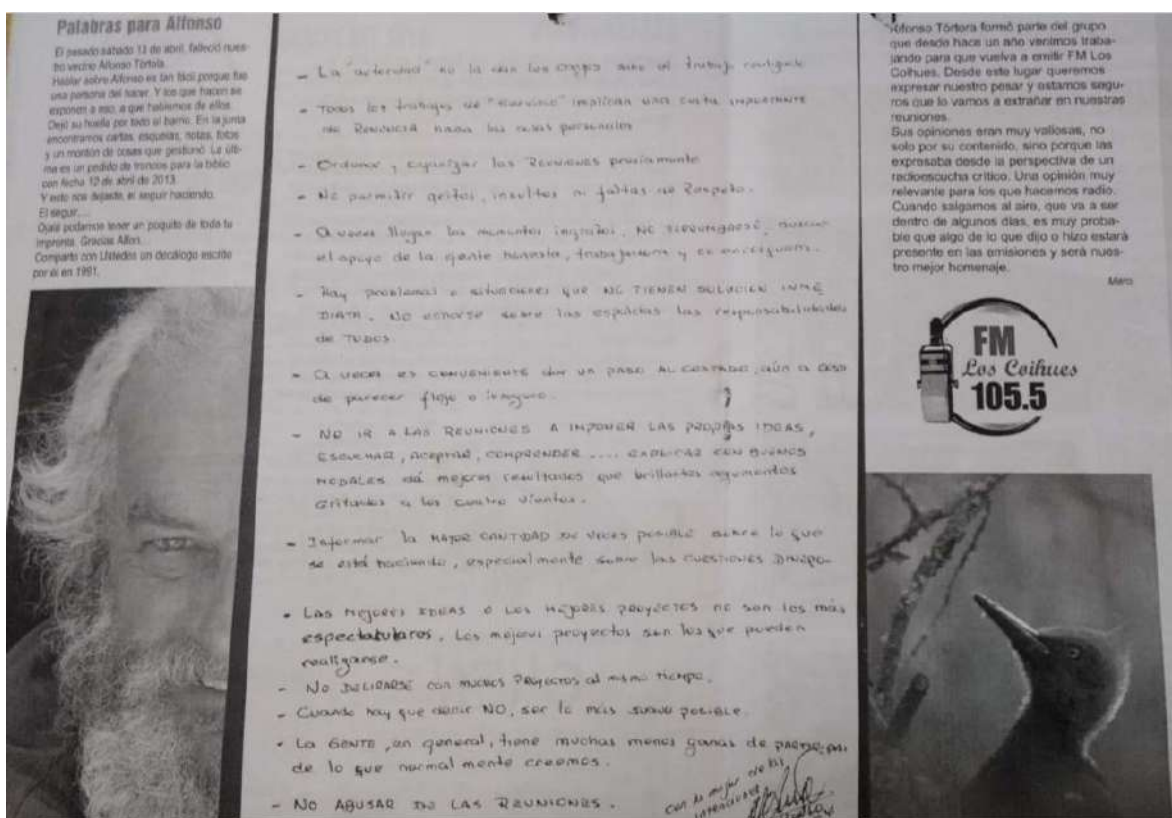 Palabras para Alfonso
El pasado sábado 13 de abril, falleció nues-
tro vecino Alfonso Tórtora.
Hablar sobre Alfonso es tan fácil porque fue
una persona del hacer. Y los que hacen se
exponen a eso, a que hablemos de ellos.
Dejó su huella por todo el barrio. En la junta
encontramos cartas, esquelas, notas, fotos
y un montón de cosas que gestionó. La últi-
ma es un pedido de troncos para la biblio
con fecha 12 de abril de 2013.
Y esto nos dejaste, el seguir haciendo.
El seguir....
Ojalá podamos tener un poquito de toda tu
impronta. Gracias Alfon..
Comparto con Ustedes un decálogo escrito
por él en 1991.
- La "autoridad" no la dan los cargos sino el trabajo
- TODOS los trabajos de "servicio" implican una cuota IMPORTANTE
de RENUNCIA hacia las cosas personales
- Ordenar y organizar las REUNIONES previamente
- No permitir gritos, insultos ni faltas de Respeto.
- A veces llegan los momentos ingratos, NO buscar
el apoyo de la gente honesta, trabajadora y
- Hay problemas o situaciones que NO TIENEN SOLUCIÓN INME
DIATA. NO echarse sobre las espaldas las responsabilidades
de TODOS
- A veces es CONVENIENTE dar un PASO AL COSTADO, aún a
de parecer flojo o inseguro.
- NO IR A LAS REUNIONES A IMPONER LAS PROPIAS IDEAS,
ESCUCHAR, ACEPTAR, COMPRENDER .... EXPLICAR CON BUENOS
MODALES dá mejores resultados que brillantes argumentos
Gritados a los cuatro vientos.
- Informar la MAYOR CANTIDAD DE VECES POSIBLE sobre lo que
se está haciendo, especialmente sobre las CUESTIONES
- LAS MEJORES IDEAS o LOS MEJORES proyectos no son los más
espectaculares. Los mejores proyectos son los que pueden
realizarse.
- NO DELIRARSE con muchos Proyectos al mismo tiempo.
- Cuando hay que decir NO, ser lo más suave posible.
- La GENTE, en general, tiene muchas menos ganas de
de lo que normalmente creemos.
- NO ABUSAR DE LAS REUNIONES.
Con la mejor de las
intenciones
Alfonso Tórtora formó parte del grupo
que desde hace un año venimos traba-
jando para que vuelva a emitir FM Los
Coihues. Desde este lugar queremos
expresar nuestro pesar y estamos segu-
ros que lo vamos a extrañar en nuestras
reuniones.
Sus opiniones eran muy valiosas, no
solo por su contenido, sino porque las
expresaba desde la perspectiva de un
radioescucha crítico. Una opinión muy
relevante para los que hacemos radio.
Cuando salgamos al aire, que va a ser
dentro de algunos días, es muy proba-
ble que algo de lo que dijo o hizo estará
presente en las emisiones y será nues-
tro mejor homenaje.
FM
Los Coihues
105.5